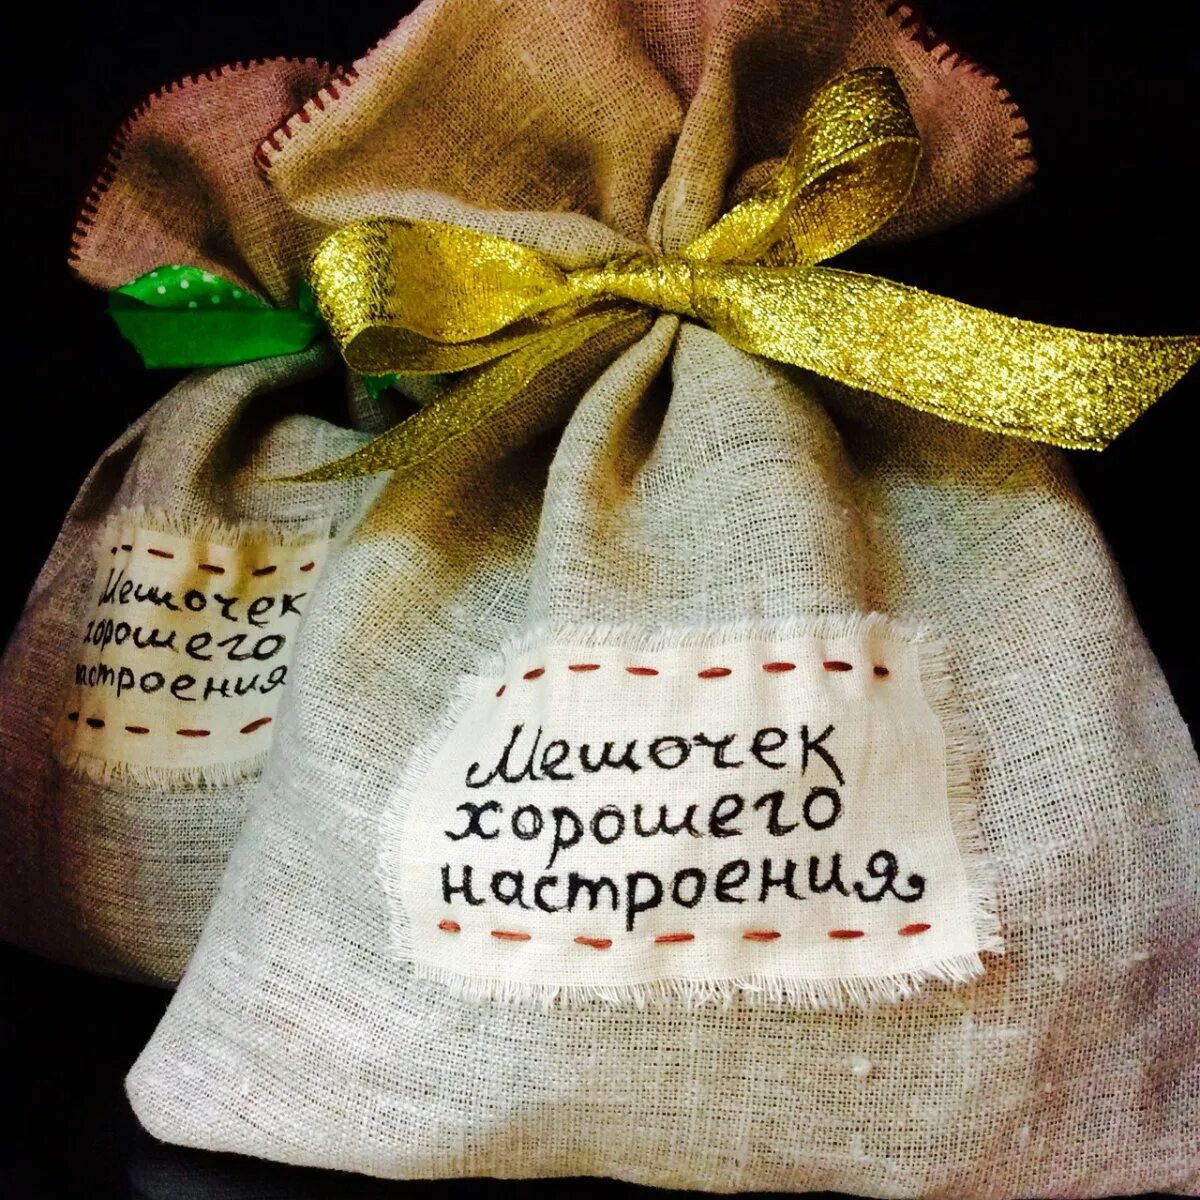 Мешочек
хорошего
настроения
Мешочек
хорошего
настроения